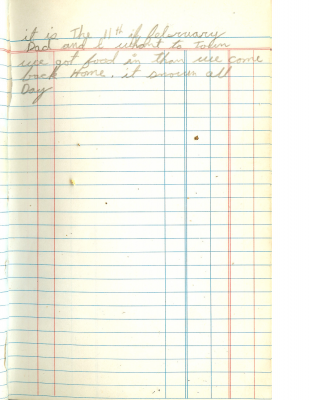 it is The 11th if february
Dad and I whant to Town
wee got food in than wee come
back Home. it snown all
Day